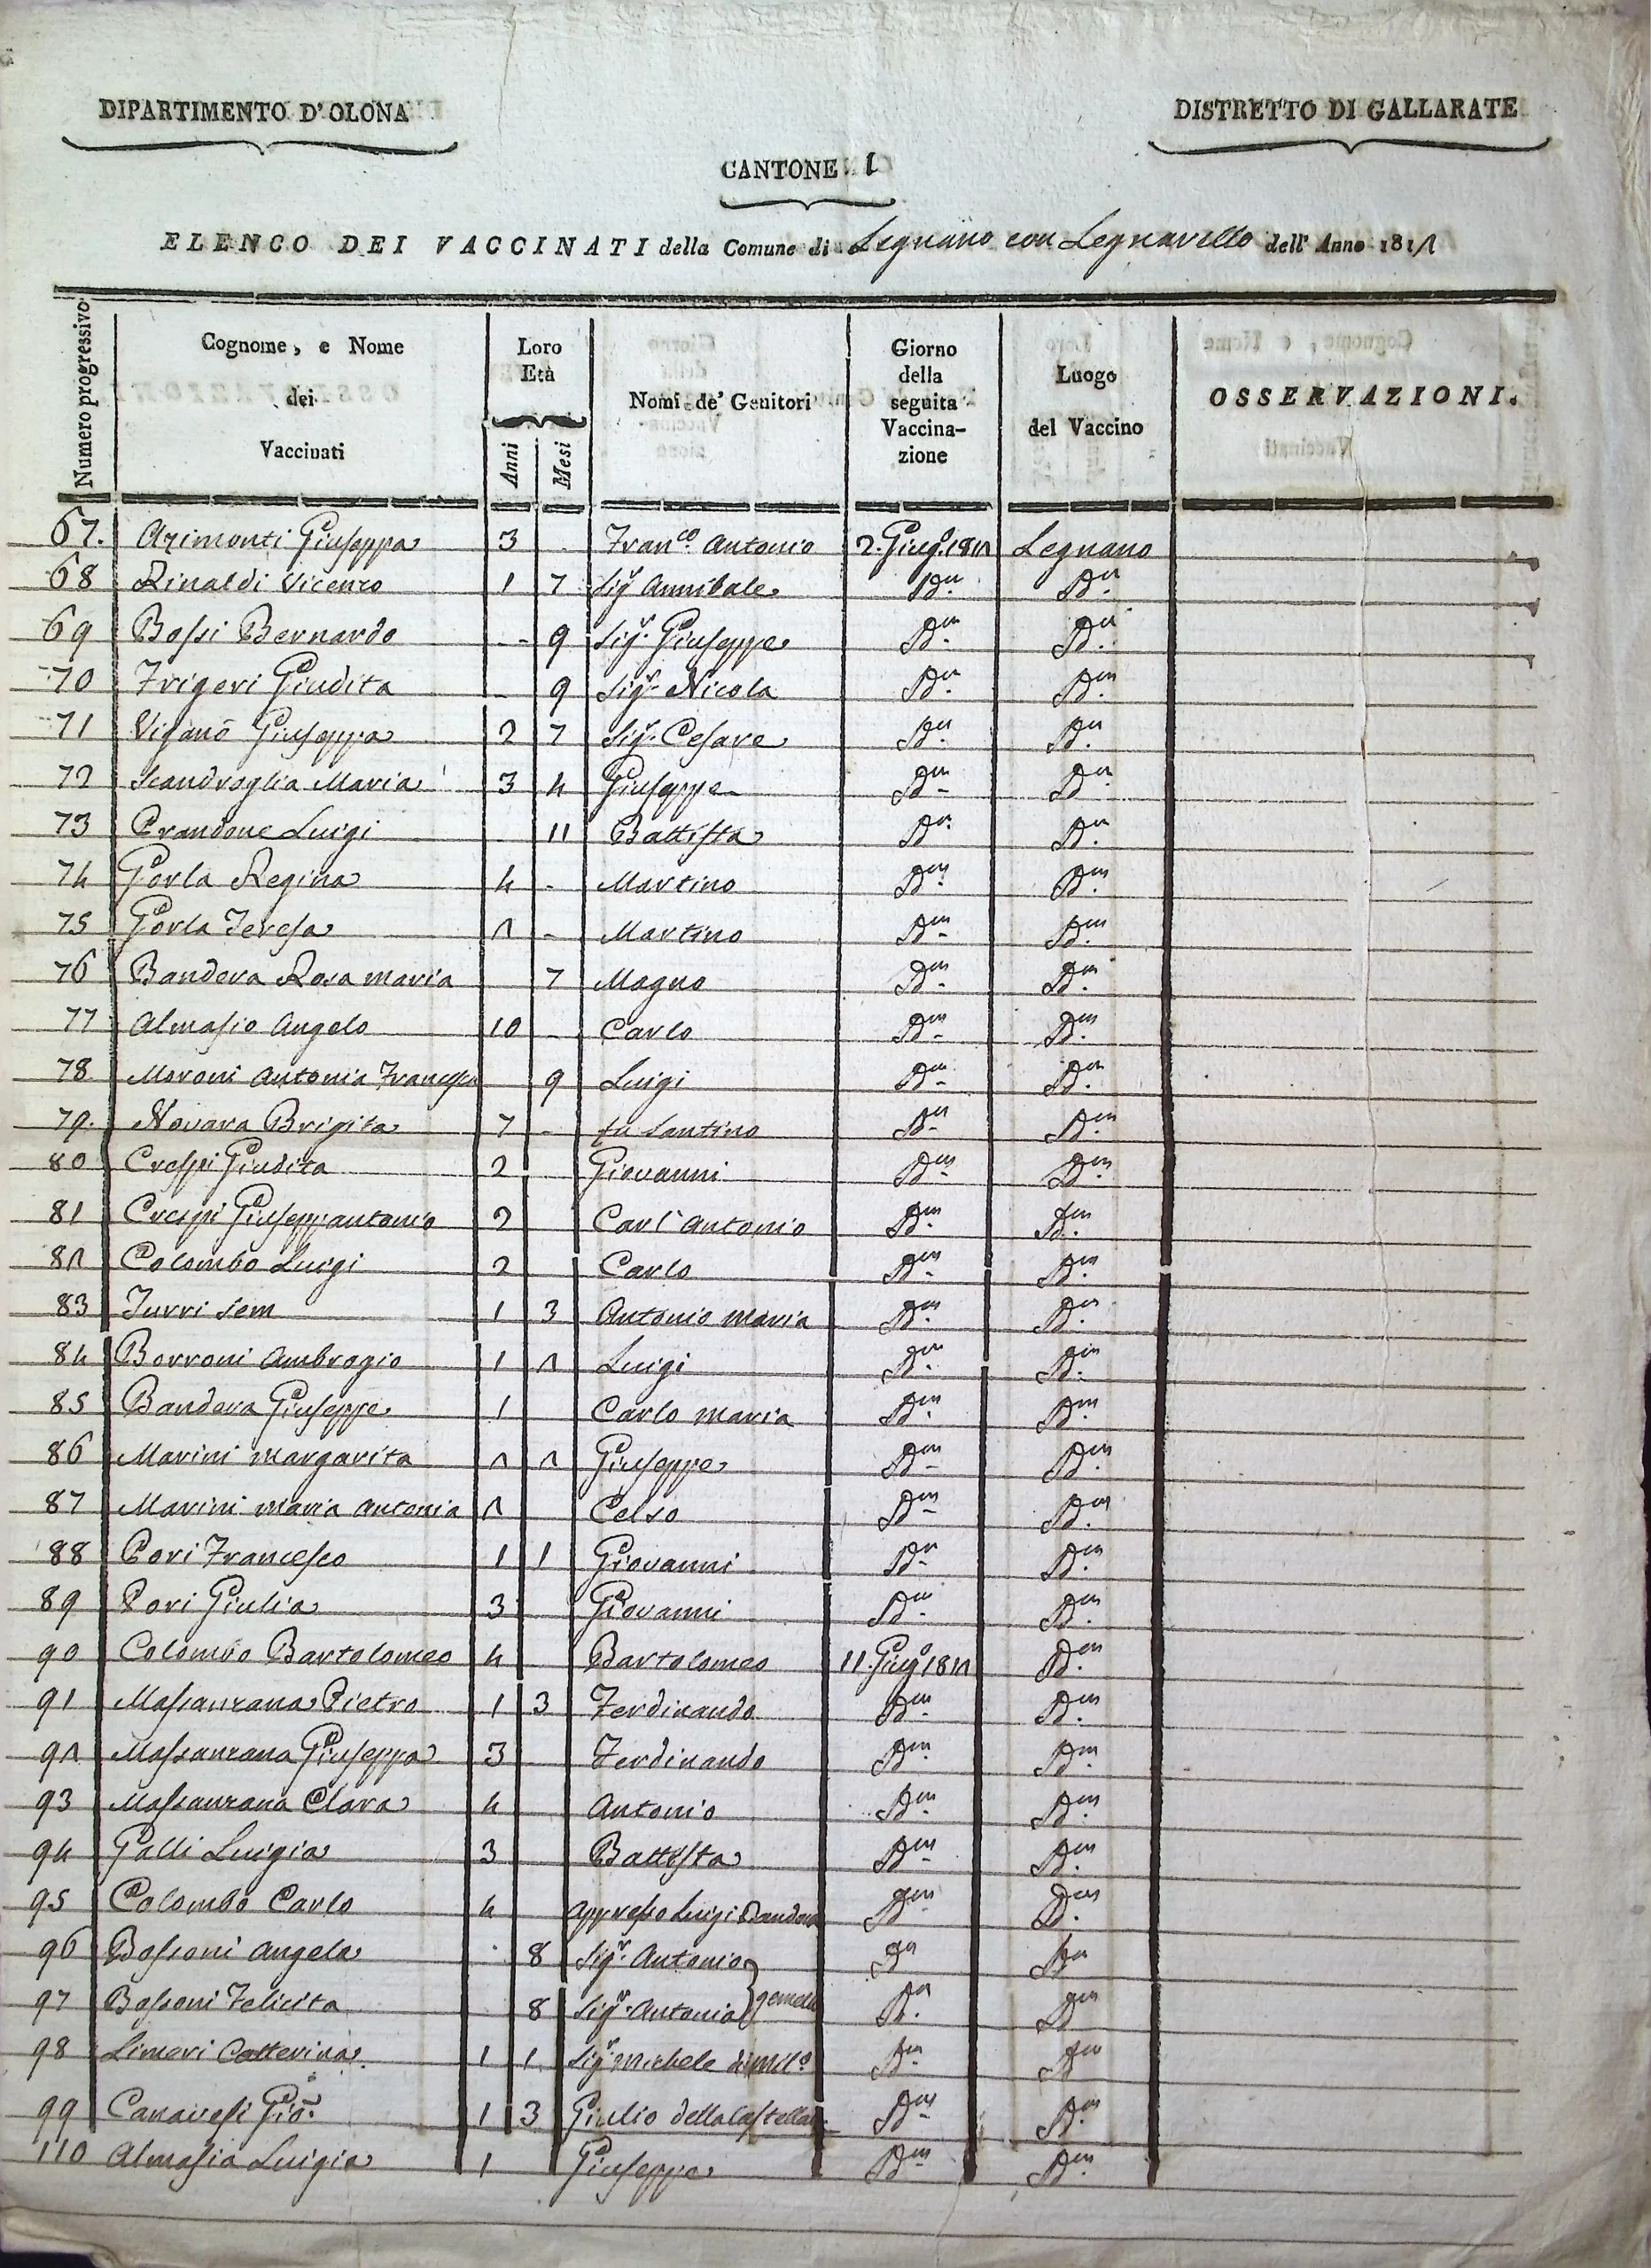 DIPARTIMENTO D'OLONA
DISTRETTO DI GALLARATE
CANTONE I
ELENCO DEI VACCINATI della Comune di Legnano con Legnarello dell' Anno 1812
Numero progressivo | Cognome, e Nome dei Vaccinati | Loro Età Anni Mesi | Nomi de' Genitori | Giorno della seguita Vaccinazione | Luogo del Vaccino | OSSERVAZIONI.
67. Azimonti Giuseppa 3 . Franco. Antonio 2. Giugo. 1812 Legnano
68 Rinaldi Vicenzo 1 7 Sigr Annibale Dm. Dm.
69 Bossi Bernardo - 9 Sigr. Giuseppe Dm. Dm.
70 Frigeri Giudita - 9 Sigr. Nicola Dm. Dm.
71 Viganò Giuseppa 2 7 Sigr. Cesare Dm. Dm.
72 Scandroglia Maria 3 4 Giuseppe Dm. Dm.
73 Prandone Luigi 11 Battista Dm. Dm.
74 Gorla Regina 4 - Martino Dm. Dm.
75 Gorla Teresa 2 - Martino Dm. Dm.
76 Bandera Rosa Maria 7 Magno Dm. Dm.
77 Almasio Angelo 10 - Carlo Dm. Dm.
78 Moroni Antonia Francesca 9 Luigi Dm. Dm.
79. Novara Brigita 7 - fu Santino Dm. Dm.
80 Crespi Giudita 2 Giovanni Dm. Dm.
81 Crespi Giuseppantonio 2 Carl'Antonio Dm. Dm.
82 Colombo Luigi 2 Carlo Dm. Dm.
83 Turri Sem 1 3 Antonio Maria Dm. Dm.
84 Borroni Ambrogio 1 2 Luigi Dm. Dm.
85 Bandera Giuseppe 1 Carlo Maria Dm. Dm.
86 Marini Margarita 2 2 Giuseppe Dm. Dm.
87 Marini Maria Antonia 2 Celso Dm. Dm.
88 Pori Francesco 1 1 Giovanni Dm. Dm.
89 Pori Giulia 3 Giovanni Dm. Dm.
90 Colombo Bartolomeo 4 Bartolomeo 11. Giugo 1812 Dm.
91 Massanzana Pietro 1 3 Ferdinando Dm. Dm.
92 Massanzana Giuseppa 3 Ferdinando Dm. Dm.
93 Massanzana Clara 4 Antonio Dm. Dm.
94 Galli Luigia 3 Battista Dm. Dm.
95 Colombo Carlo 4 appresso Luigi Bandera Dm. Dm.
96 Bossoni Angela 8 Sigr. Antonio Dm Dm
97 Bossoni Felicita 8 Sigr. Antonio gemelle Dm. Dm
98 Limeri Catterina 1 1 Sigr. Michele di Milo. Dm. Dm
99 Canavesi Gio. 1 3 Giulio della Castellan Dm. Dm.
110 Almasia Luigia 1 Giuseppe Dm. Dm.